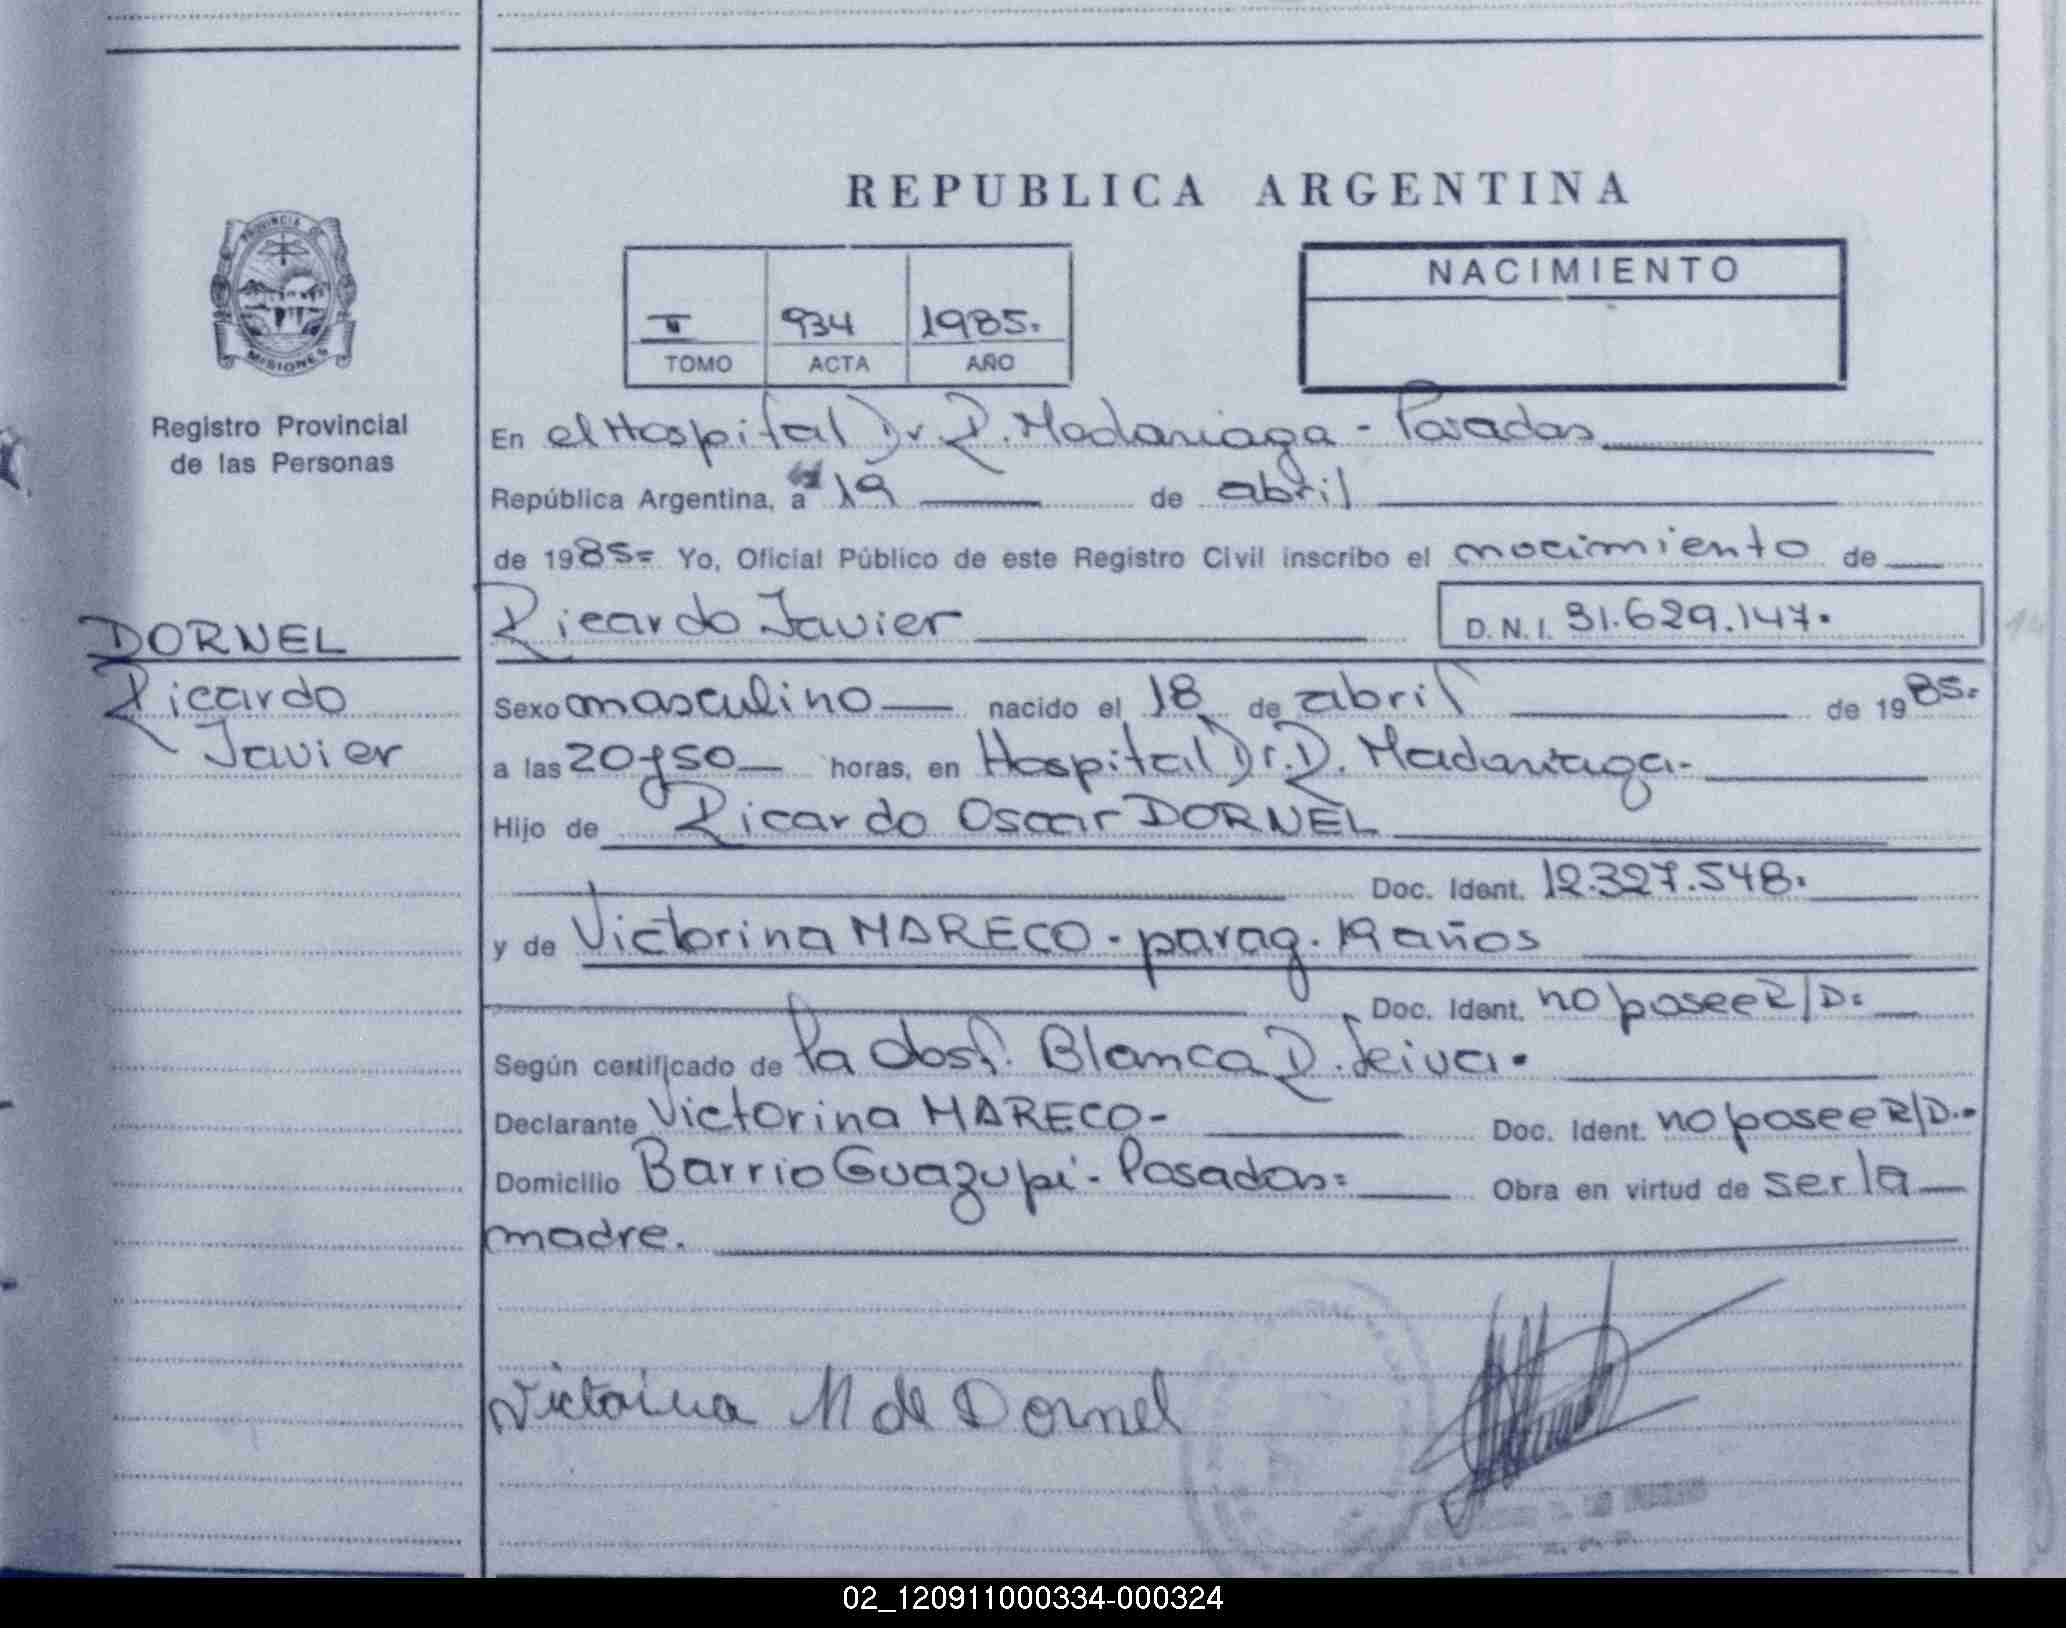 REPUBLICA ARGENTINA
PROVINCIA DE
MISIONES
Registro Provincial
de las Personas
DORNEL
Ricardo
Javier
934 1985.
TOMO ACTA AÑO
NACIMIENTO
En el Hospital Dr. R. Madariaga - Posadas
República Argentina, a 19 de abril
de 1985= Yo, Oficial Público de este Registro Civil inscribo el nacimiento de
Ricardo Javier D.N.I. 31.629.147.
Sexo masculino nacido el 18 de abril de 1985.
a las 20 y 50 horas, en Hospital Dr. R. Madariaga-
Hijo de Ricardo Oscar DORNEL
Doc. Ident. 12.327.548.
y de Victorina MARECO - parag. 19 años
Doc. Ident. no posee R/D=
Según certificado de la Obst. Blanca R. Leiva.
Declarante Victorina MARECO- Doc. Ident. no posee R/D.-
Domicilio Barrio Guazupi - Posadas= Obra en virtud de ser la
madre.
Victorina M de Dornel
02_120911000334-000324